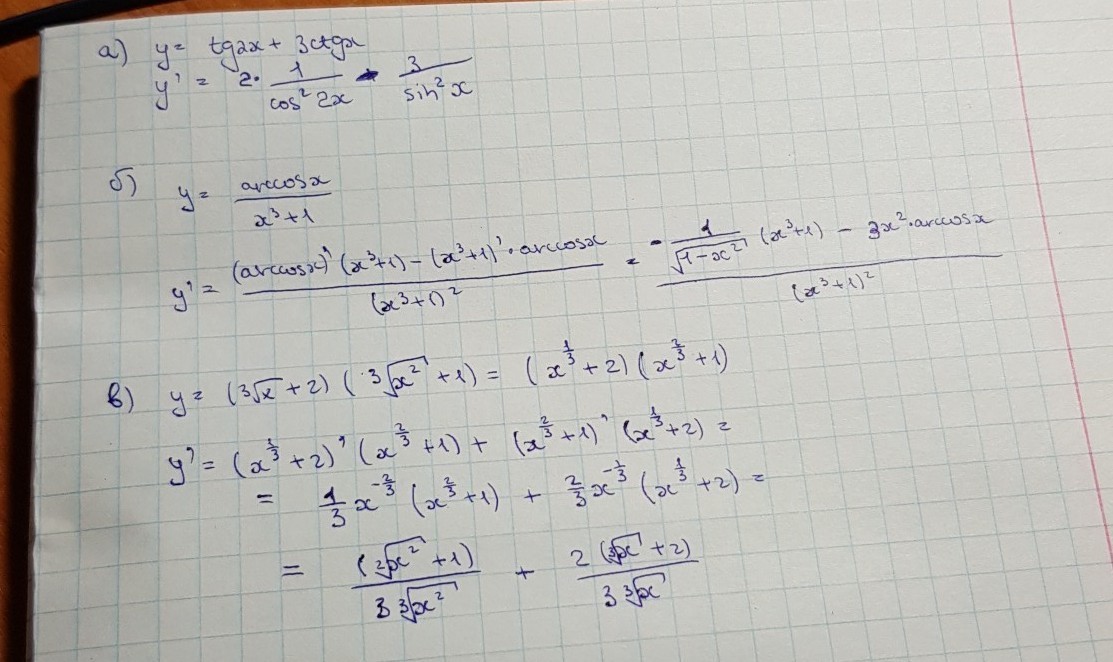 а) y = tg2x + 3ctgx
y' = 2 · 1/cos² 2x - 3/sin² x
б) y = arccosx/x³+1
y' = (arccosx)' (x³+1) - (x³+1)' · arccosx/(x³+1)² = - 1/√1-x² (x³+1) - 3x² · arccosx/(x³+1)²
в) y = (³√x + 2) (³√x² + 1) = (x^1/3 + 2) (x^2/3 + 1)
y' = (x^1/3 + 2)' (x^2/3 + 1) + (x^2/3 + 1)' (x^1/3 + 2) =
= 1/3 x^-2/3 (x^2/3 + 1) + 2/3 x^-1/3 (x^1/3 + 2) =
= (³√x² + 1)/3 ³√x² + 2 (³√x + 2)/3 ³√x